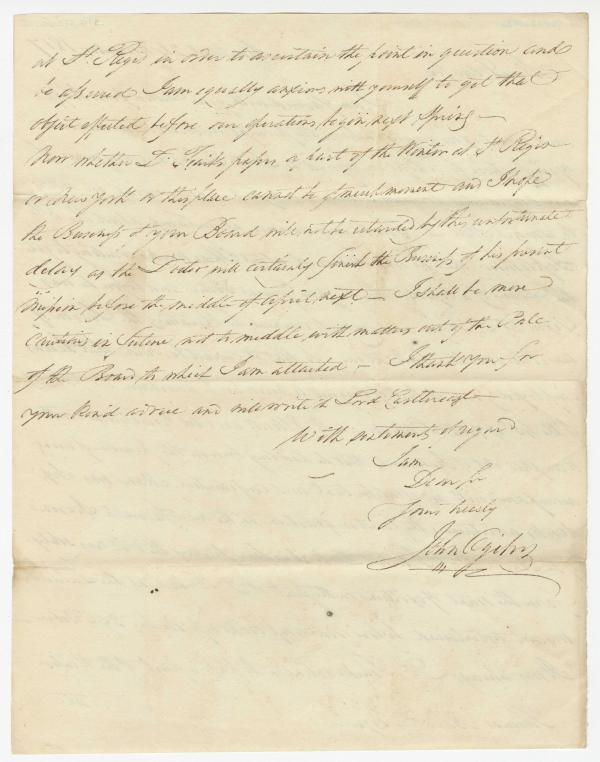 at St. Regis in order to ascertain the point in question and
be assured I am equally anxious with yourself to get that
object effected before our operations begin next Spring —
Now whether Dr. Tiarks passes a part of the Winter at St. Regis
or New York or this place cannot be of much moment and I hope
the Business of your Board will not be retarded by this unfortunate
delay as the Doctor will certainly finish the Business of his present
mission before the middle of April next — I shall be more
Cautious in future not to meddle with matters out of the Pale
of the Board to which I am attached — I thank you for
your kind advice and will write to Lord Castlereagh
With sentiments of regard
I am
Dear Sir
Yours truly
John Ogilvy